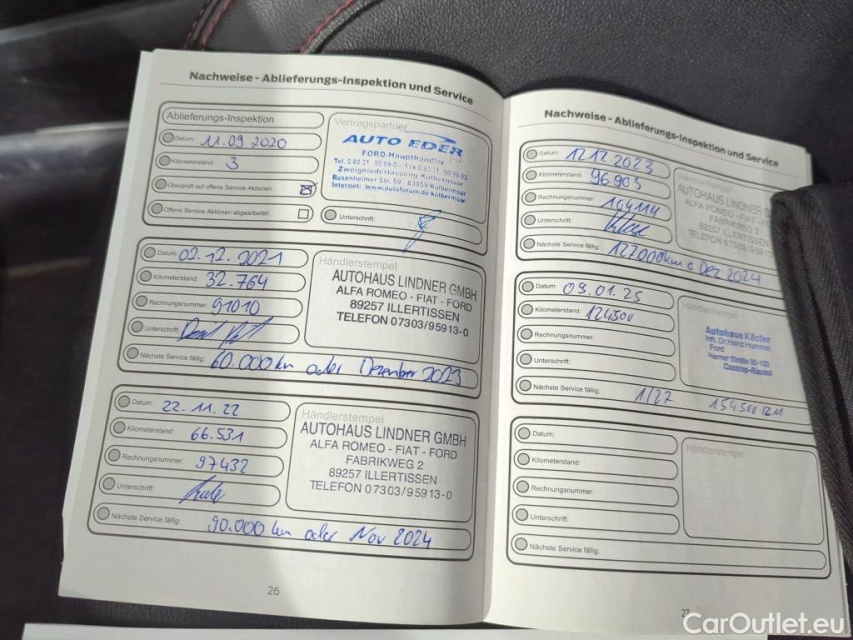 Nachweise - Ablieferungs-Inspektion und Service
Ablieferungs-Inspektion
Datum: 11.09.2020
Kilometerstand: 3
Überprüft auf offene Service Aktionen:
Offene Service Aktionen abgearbeitet:
Vertragspartner
AUTO EDER
FORD-Haupthändler
Zweigniederlassung Kolbermoor
Rosenheimer Str. 59 · 83059 Kolbermoor
Internet: www.autoforum.de/kolbermoor
Unterschrift:
Datum: 02.12.2021
Kilometerstand: 32.764
Rechnungsnummer: 91010
Unterschrift:
Nächste Service fällig: 60.000 km oder Dezember 2023
Händlerstempel
AUTOHAUS LINDNER GMBH
ALFA ROMEO - FIAT - FORD
89257 ILLERTISSEN
TELEFON 07303/95913-0
Datum: 22.11.22
Kilometerstand: 66.531
Rechnungsnummer: 97432
Unterschrift:
Nächste Service fällig: 90.000 km oder Nov 2024
Händlerstempel
AUTOHAUS LINDNER GMBH
ALFA ROMEO - FIAT - FORD
FABRIKWEG 2
89257 ILLERTISSEN
TELEFON 07303/95913-0
26
Nachweise - Ablieferungs-Inspektion und Service
Datum: 12.12.2023
Kilometerstand: 96.905
Rechnungsnummer: 104114
Unterschrift:
Nächste Service fällig: 127000km o Dez 2024
AUTOHAUS LINDNER GMBH
ALFA ROMEO - FIAT - FORD
FABRIKWEG 2
89257 ILLERTISSEN
TELEFON 07303/95913-0
Datum: 09.01.25
Kilometerstand: 124500
Rechnungsnummer:
Unterschrift:
Nächste Service fällig: 1/27 154500 KM
Händlerstempel
Autohaus Köster
Inh. Dr. Heinz Hummel
Ford
Herner Straße 95-100
Castrop-Rauxel
Datum:
Kilometerstand:
Rechnungsnummer:
Unterschrift:
Nächste Service fällig:
Händlerstempel
27
CarOutlet.eu